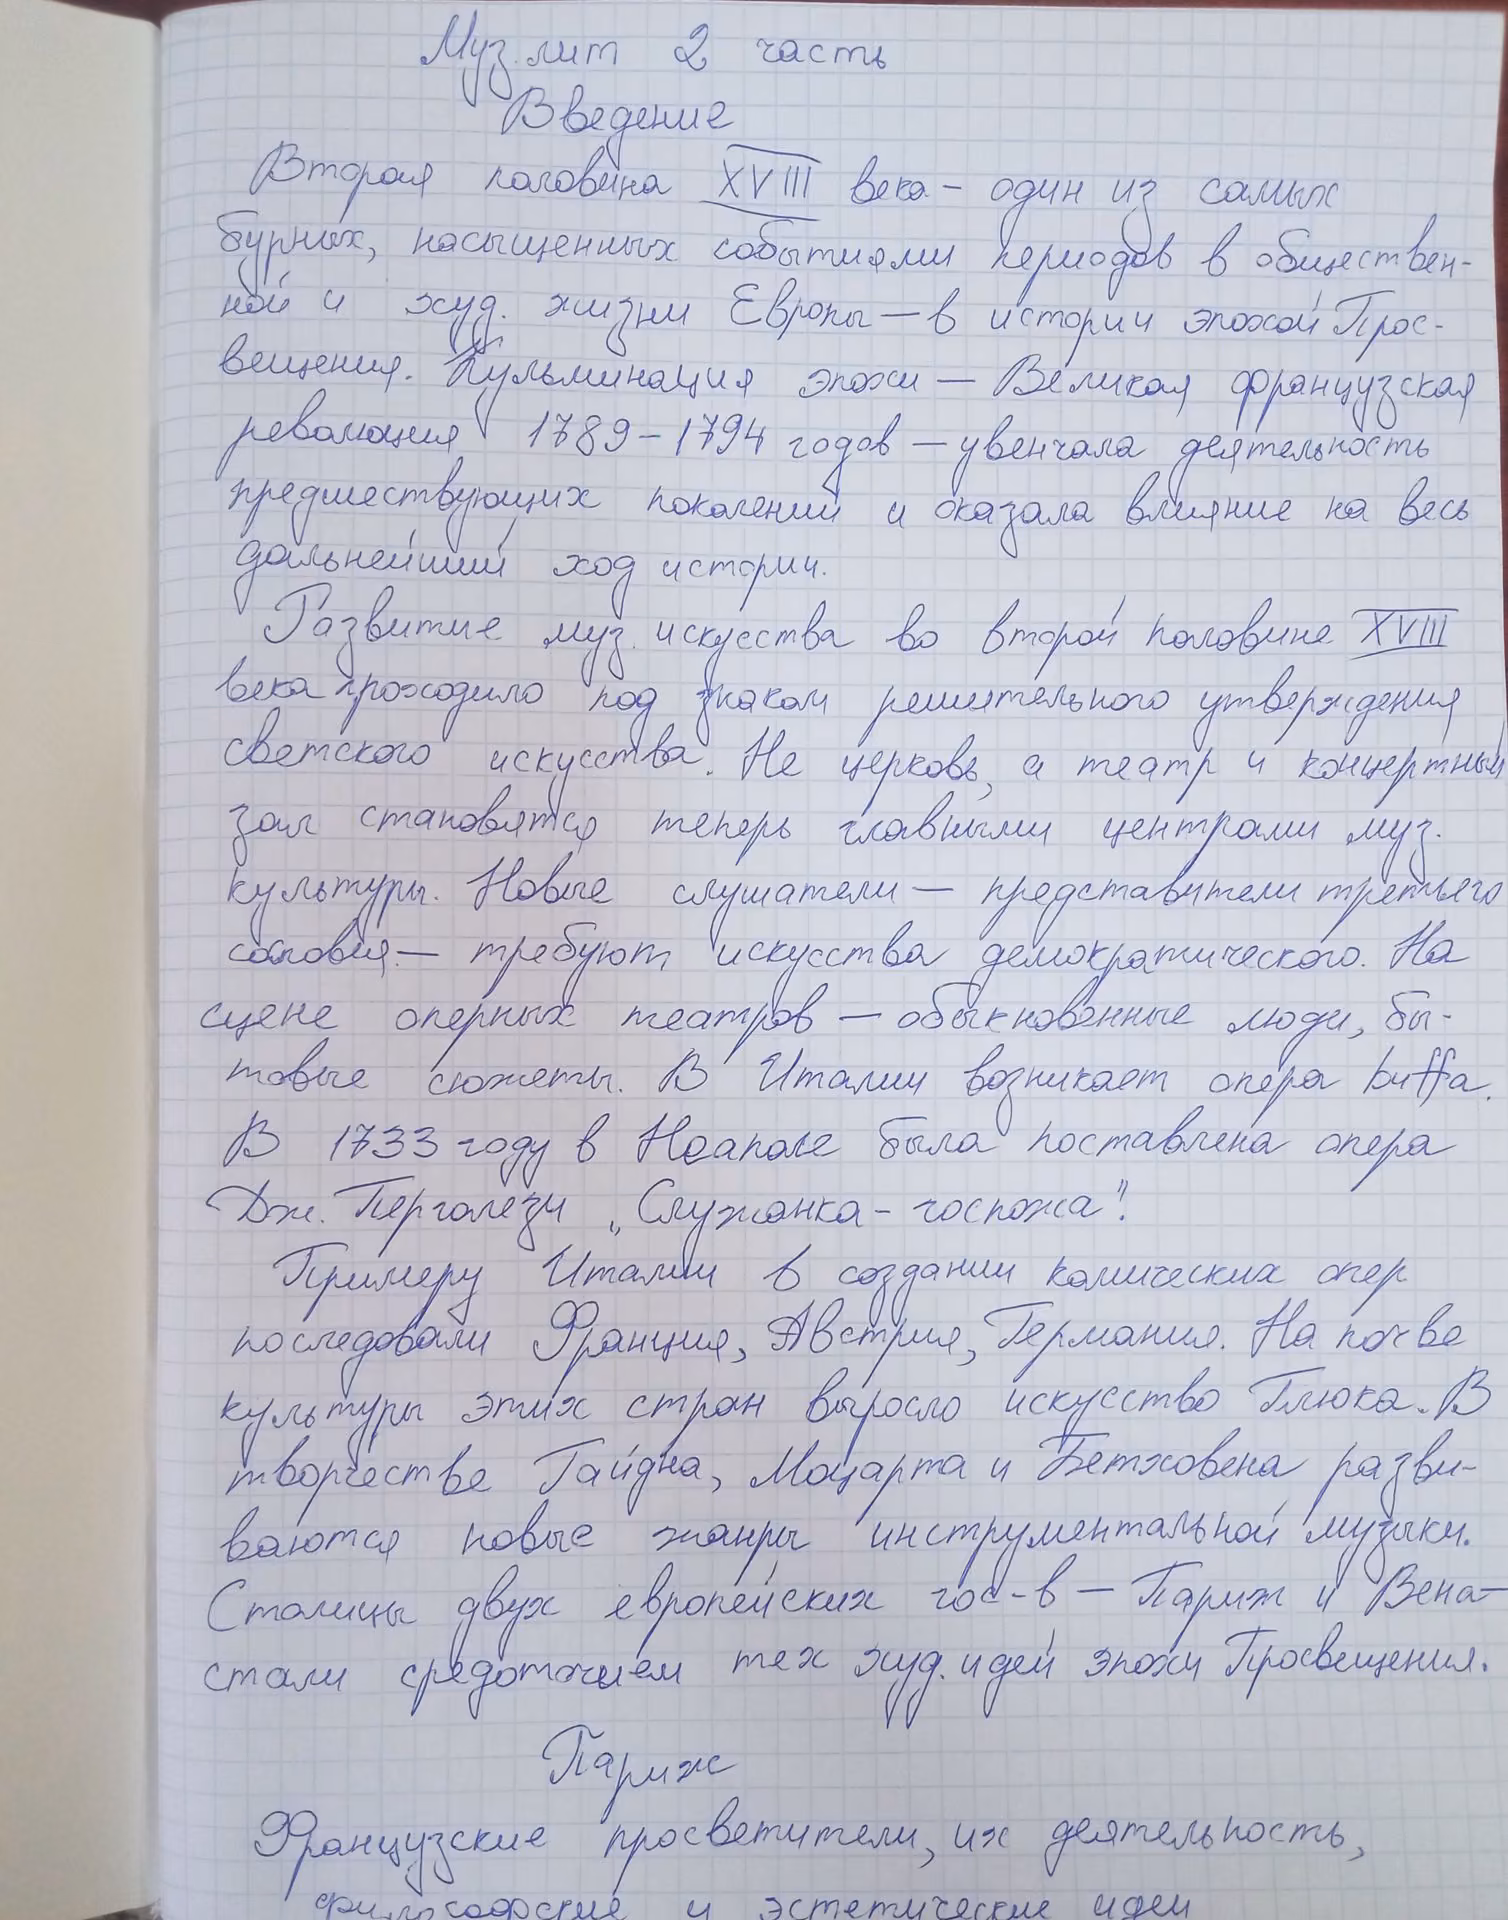 Муз. лит 2 часть
Введение
Вторая половина XVIII века – один из самых
бурных, насыщенных событиями периодов в обществен-
ной и худ. жизни Европы – в истории эпохой Прос-
вещения. Кульминация эпохи – Великая французская
революция 1789 – 1794 годов – увенчала деятельность
предшествующих поколений и оказала влияние на весь
дальнейший ход истории.
Развитие муз. искусства во второй половине XVIII
века проходило под знаком решительного утверждения
светского искусства. Не церковь, а театр и концертный
зал становятся теперь главными центрами муз.
культуры. Новые слушатели – представители третьего
сословия – требуют искусства демократического. На
сцене оперных театров – обыкновенные люди, бы-
товые сюжеты. В Италии возникает опера buffa.
В 1733 году в Неаполе была поставлена опера
Дж. Перголези „Служанка - госпожа".
Примеру Италии в создании комических опер
последовали Франция, Австрия, Германия. На почве
культуры этих стран выросло искусство Глюка. В
творчестве Гайдна, Моцарта и Бетховена разви-
ваются новые жанры инструментальной музыки.
Столицы двух европейских гос-в – Париж и Вена –
стали средоточием тех худ. идей эпохи Просвещения.
Париж
Французские просветители, их деятельность,
философские и эстетические идеи